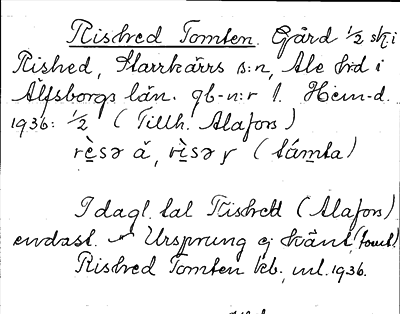 Rishred Tomten. Gård 1/2 sk. i
Rished, Starrkärrs s:n, Ale hd i
Älfsborgs län. gb-n:r 1. Hem-d.
1936: 1/2 (Tillh. Alafors)
rèsə å, rèsər (támta)
I dagl. tal Rishett (Alafors)
endast. Ursprung ej känt,
Rishred Tomten kb, ml. 1936.